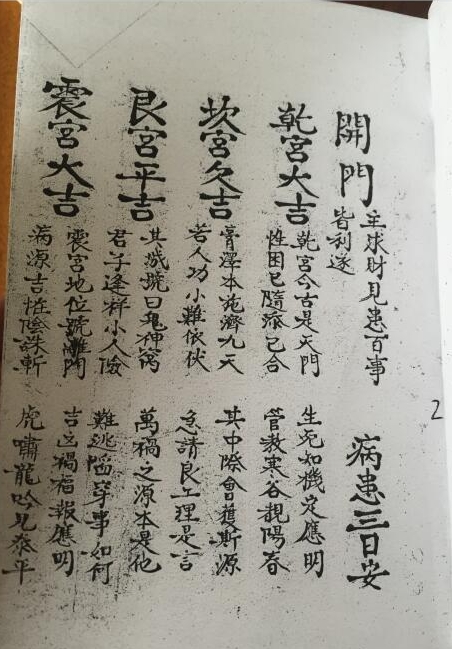 開門 主求財見患百事
皆利遂 病患三日安
乾宮大吉 乾宮今古是天門 生死如機定應明
性困已隨添已合 管教寒谷覩陽春
坎宮久吉 膏澤本施濟九天 其中際會獲斯源
若人功小難依伏 急請良工理是言
艮宮平吉 其淺號曰鬼神窩 萬禍之源本是他
君子逢祥小人儉 難逃陷穽事如何
震宮大吉 震宮地位號雕門 吉凶禍福報應明
病源吉性陰誅斬 虎嘯龍吟見泰平
2